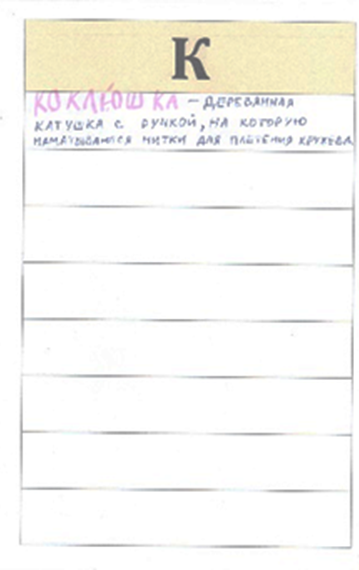 К
КОКЛЮШКА – ДЕРЕВЯННАЯ
КАТУШКА С РУЧКОЙ, НА КОТОРУЮ
НАМАТЫВАЮТСЯ НИТКИ ДЛЯ ПЛЕТЕНИЯ КРУЖЕВА